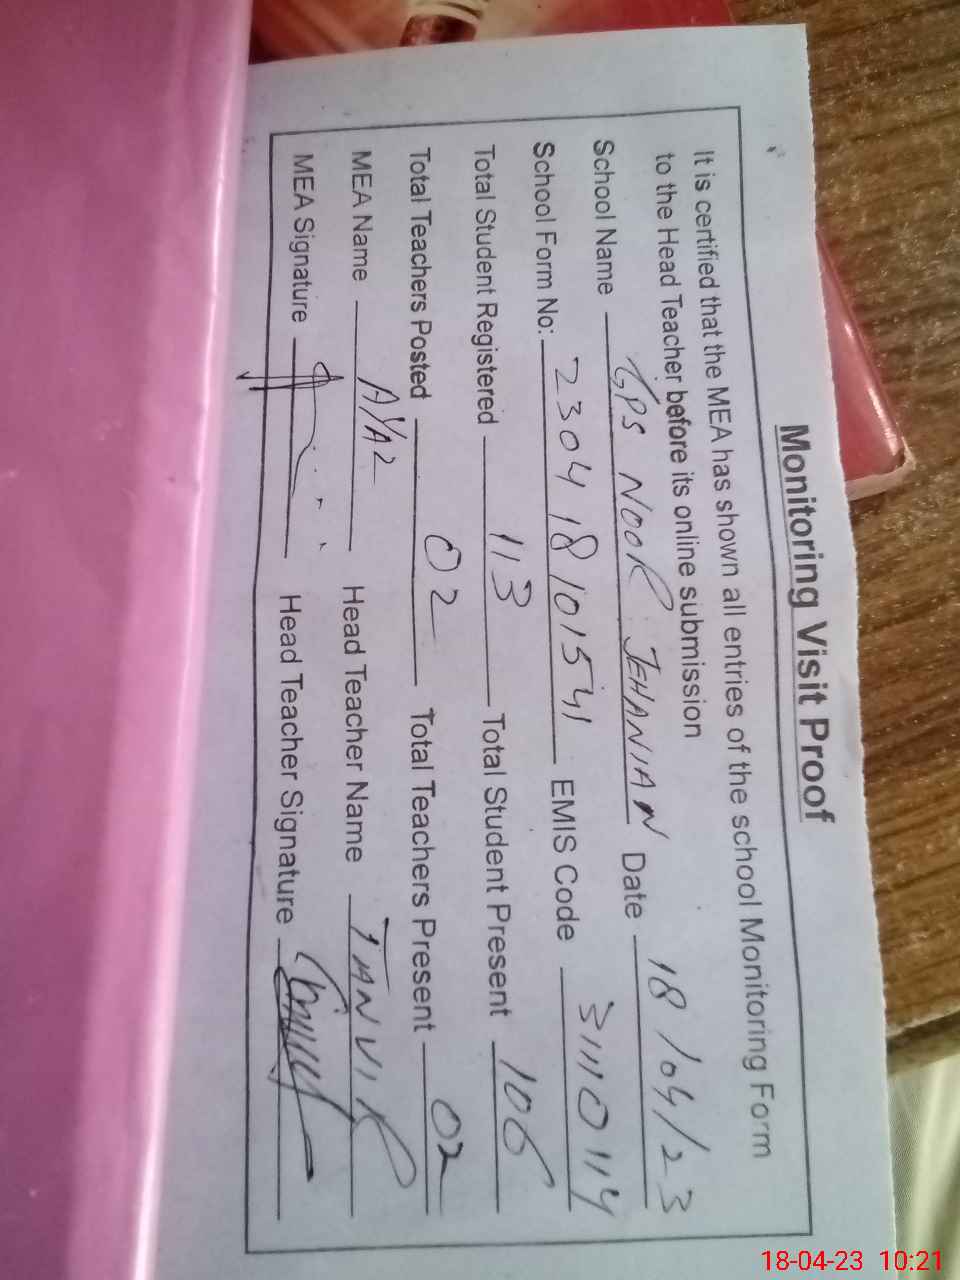 Monitoring Visit Proof
It is certified that the MEA has shown all entries of the school Monitoring Form
to the Head Teacher before its online submission
School Name GPS NOOR JEHANIAN Date 18/04/23
School Form No: 230418101541 EMIS Code 31110114
Total Student Registered 113 Total Student Present 106
Total Teachers Posted 02 Total Teachers Present 02
MEA Name AYAZ Head Teacher Name TANVIR
MEA Signature Head Teacher Signature
18-04-23 10:21